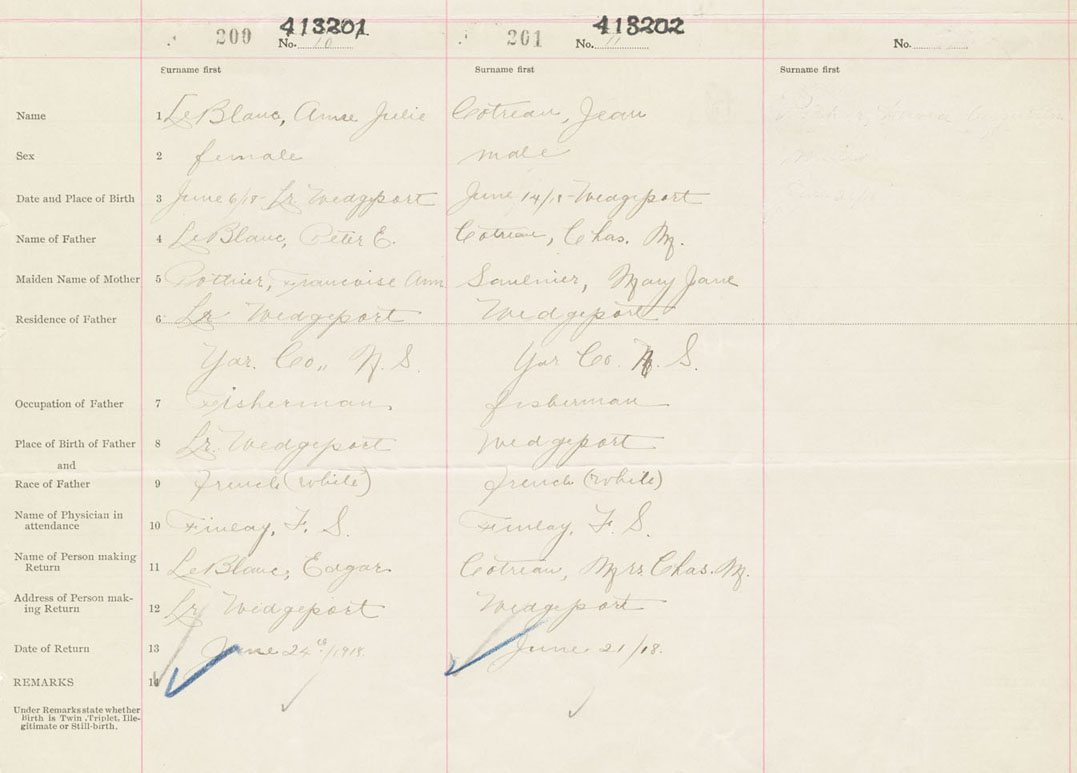 413201 413202
200 No. 10 201 No. 11 No.
Surname first Surname first Surname first
Name 1 LeBlanc, Anne Julie Cotreau, Jean
Sex 2 female male
Date and Place of Birth 3 June 6/18 - Lr. Wedgeport June 14/18 - Wedgeport
Name of Father 4 LeBlanc, Peter E. Cotreau, Chas. M.
Maiden Name of Mother 5 Pottier, Francoise Ann Saulnier, Mary Jane
Residence of Father 6 Lr Wedgeport Wedgeport
Yar. Co., N. S. Yar Co. N. S.
Occupation of Father 7 Fisherman fisherman
Place of Birth of Father 8 Lr. Wedgeport Wedgeport
and
Race of Father 9 French (White) French (White)
Name of Physician in
attendance 10 Finlay, F. S. Finlay, F. S.
Name of Person making
Return 11 LeBlanc, Edgar Cotreau, Mrs. Chas. M.
Address of Person mak-
ing Return 12 Lr Wedgeport Wedgeport
Date of Return 13 June 24th/1918 June 21/18.
REMARKS 14
Under Remarks state whether
Birth is Twin, Triplet, Ille-
gitimate or Still-birth.